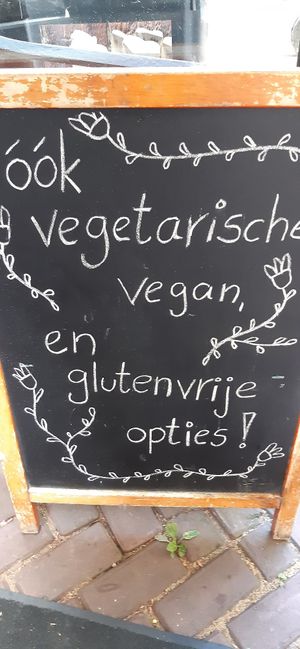 óók
vegetarische
vegan,
en
glutenvrije
opties!